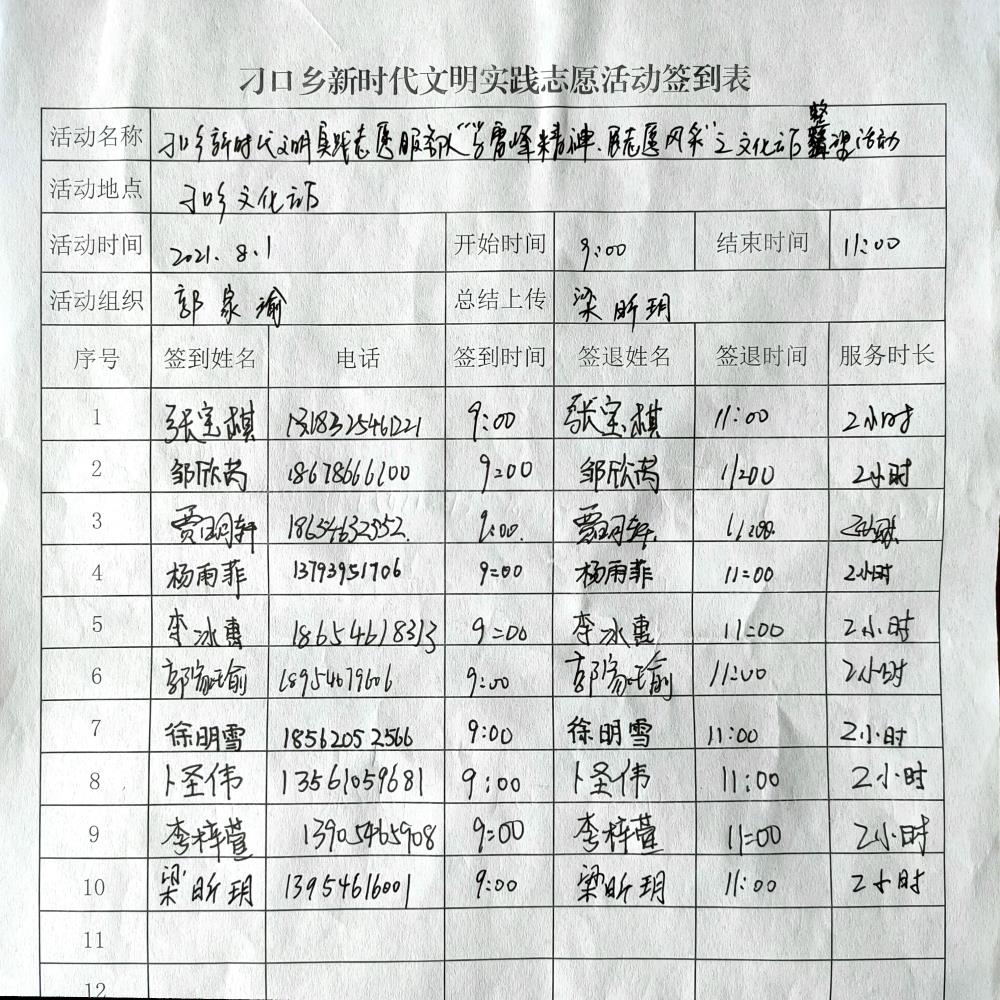 刁口乡新时代文明实践志愿活动签到表
活动名称 刁口乡新时代文明实践志愿服务队“学雷锋精神、展志愿风采”之文化站整理活动
活动地点 刁口乡文化站
活动时间 2021.8.1 开始时间 9:00 结束时间 11:00
活动组织 郭家瑜 总结上传 梁昕玥
序号 签到姓名 电话 签到时间 签退姓名 签退时间 服务时长
1 张宝棋 131832546221 9:00 张宝棋 11:00 2小时
2 邹欣芮 18678666100 9:00 邹欣芮 11:00 2小时
3 贾玥轩 18654632552 9:00 贾玥轩 11:00 2小时
4 杨雨菲 13793951706 9:00 杨雨菲 11:00 2小时
5 李冰惠 18654618313 9:00 李冰惠 11:00 2小时
6 郭家瑜 18954679606 9:00 郭家瑜 11:00 2小时
7 徐明雪 18562052566 9:00 徐明雪 11:00 2小时
8 卜圣伟 13561059681 9:00 卜圣伟 11:00 2小时
9 李梓萱 13905465908 9:00 李梓萱 11:00 2小时
10 梁昕玥 13954616001 9:00 梁昕玥 11:00 2小时
11
12